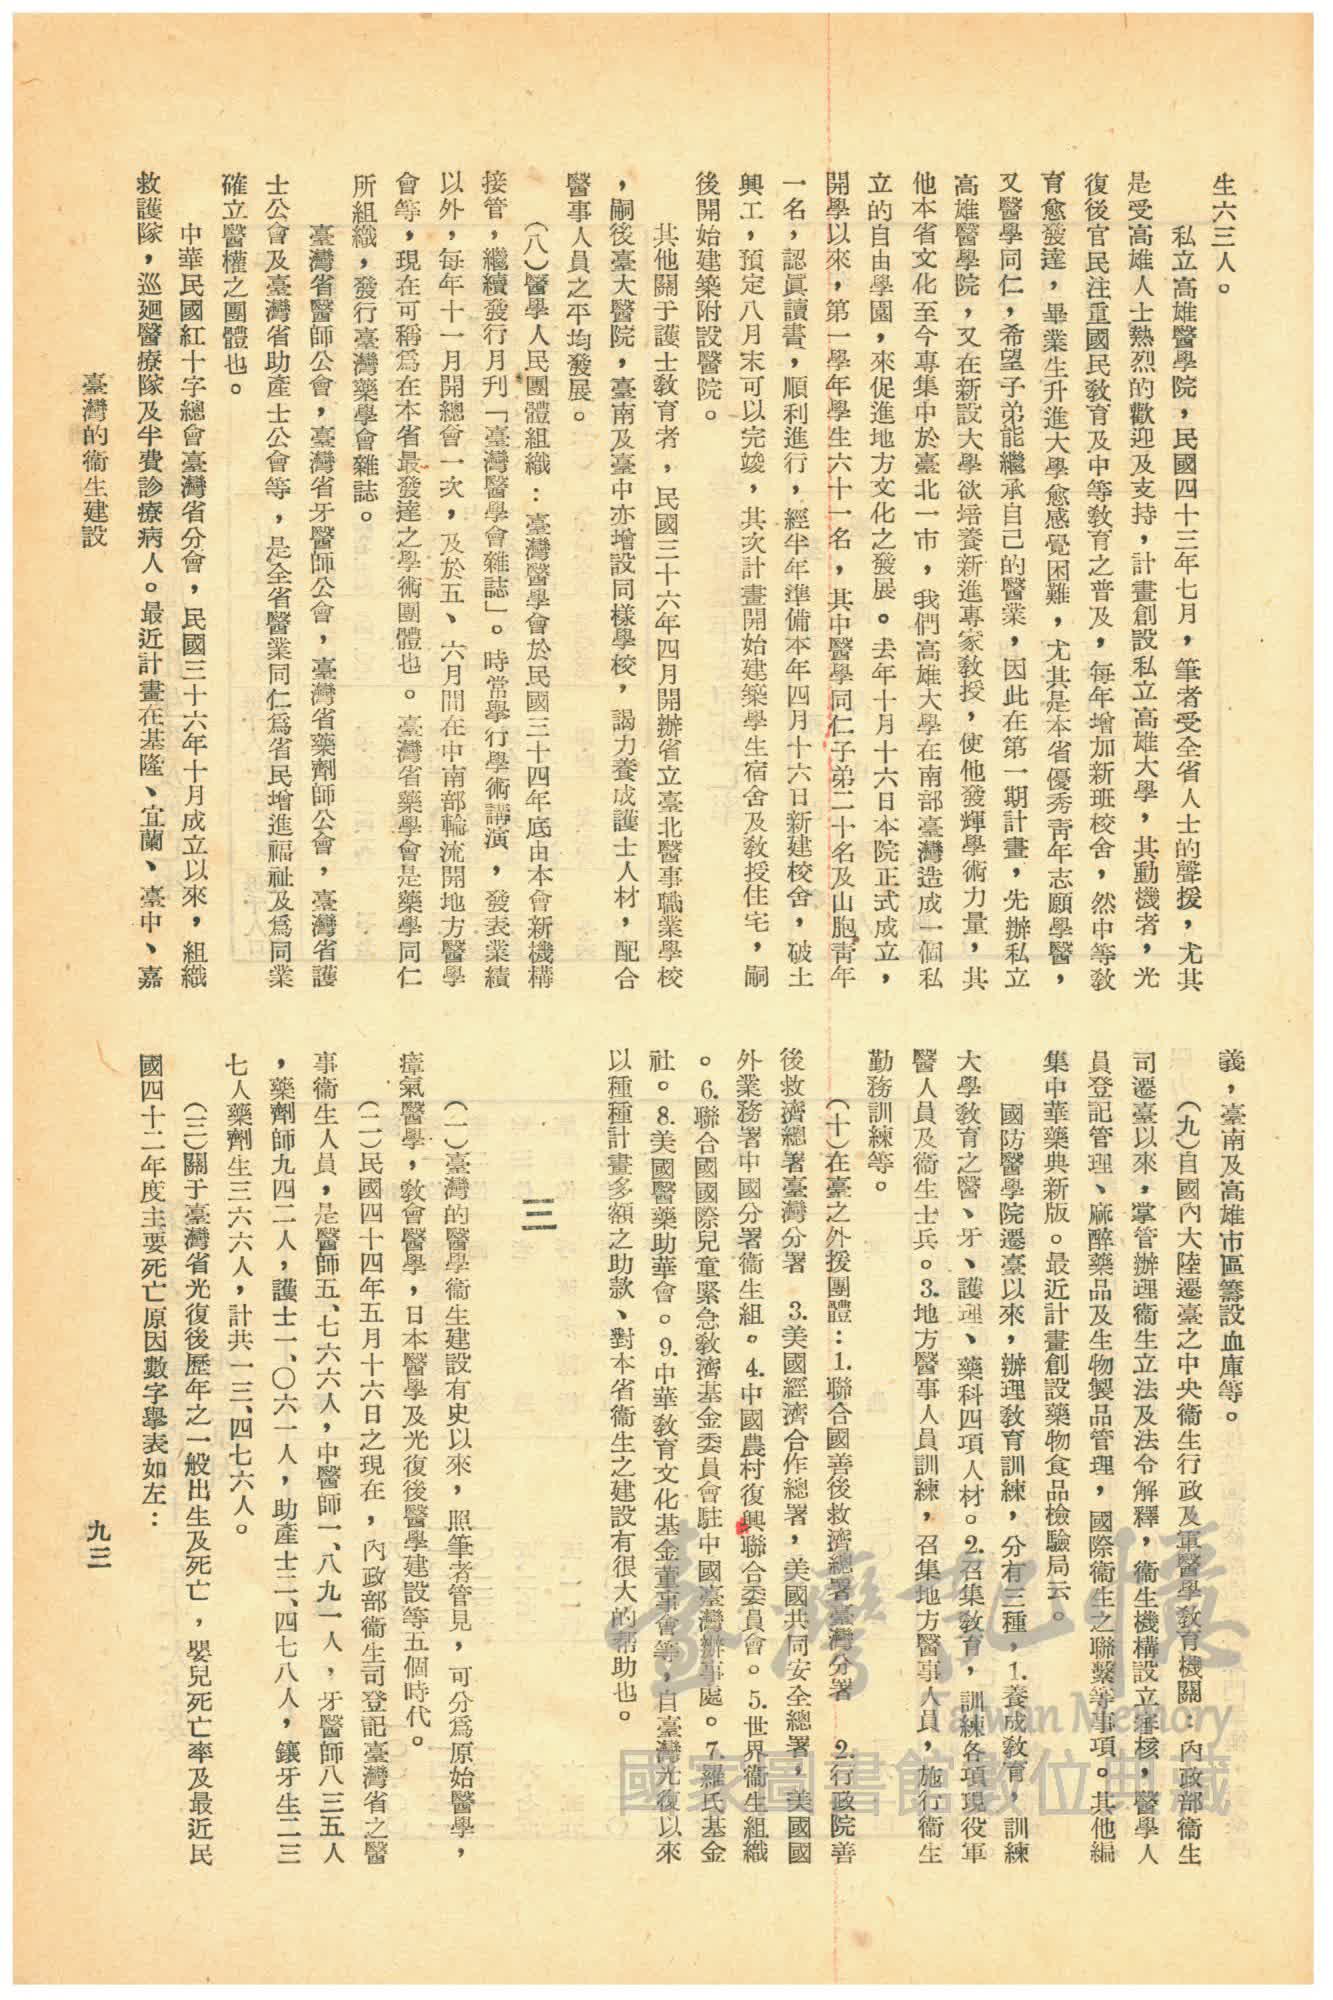 生六三人。
私立高雄醫學院，民國四十三年七月，筆者受全省人士的聲援，尤其
是受高雄人士熱烈的歡迎及支持，計畫創設私立高雄大學，其動機者，光
復後官民注重國民教育及中等教育之普及，每年增加新班校舍，然中等教
育愈發達，畢業生升進大學愈感覺困難，尤其是本省優秀靑年志願學醫，
又醫學同仁，希望子弟能繼承自己的醫業，因此在第一期計畫，先辦私立
高雄醫學院，又在新設大學欲培養新進專家教授，使他發輝學術力量，其
他本省文化至今專集中於臺北一市，我們高雄大學在南部臺灣造成一個私
立的自由學園，來促進地方文化之發展。去年十月十六日本院正式成立，
開學以來，第一學年學生六十一名，其中醫學同仁子弟二十名及山胞靑年
一名，認眞讀書，順利進行，經半年準備本年四月十六日新建校舍，破土
興工，預定八月末可以完竣，其次計畫開始建築學生宿舍及教授住宅，嗣
後開始建築附設醫院。
其他關于護士教育者，民國三十六年四月開辦省立臺北醫事職業學校
，嗣後臺大醫院，臺南及臺中亦增設同樣學校，謁力養成護士人材，配合
醫事人員之平均發展。
（八）醫學人民團體組織：臺灣醫學會於民國三十四年底由本會新機構
接管，繼續發行月刊「臺灣醫學會雜誌」。時常學行學術講演，發表業績
以外，每年十一月開總會一次，及於五、六月間在中南部輪流開地方醫學
會等，現在可稱爲在本省最發達之學術團體也。臺灣省藥學會是藥學同仁
所組織，發行臺灣藥學會雜誌。
臺灣省醫師公會，臺灣省牙醫師公會，臺灣省藥劑師公會，臺灣省護
士公會及臺灣省助產士公會等，是全省醫業同仁爲省民增進福祉及爲同業
確立醫權之團體也。
中華民國紅十字總會臺灣省分會，民國三十六年十月成立以來，組織
救護隊，巡廻醫療隊及半費診療病人。最近計畫在基隆、宜蘭、臺中、嘉
臺灣的衞生建設
義，臺南及高雄市區籌設血庫等。
（九）自國內大陸遷臺之中央衞生行政及軍醫學教育機關：內政部衞生
司遷臺以來，掌管辦理衞生立法及法令解釋，衞生機構設立審核，醫學人
員登記管理、麻醉藥品及生物製品管理，國際衞生之聯繫等事項。其他編
集中華藥典新版。最近計畫創設藥物食品檢驗局云。
國防醫學院遷臺以來，辦理教育訓練，分有三種，1.養成教育，訓練
大學教育之醫、牙、護理、藥科四項人材。2.召集教育，訓練各項現役軍
醫人員及衞生士兵。3.地方醫事人員訓練，召集地方醫事人員，施行衞生
勤務訓練等。
（十）在臺之外援團體：1.聯合國善後救濟總署臺灣分署 2.行政院善
後救濟總署臺灣分署 3.美國經濟合作總署，美國共同安全總署，美國國
外業務署中國分署衞生組。4.中國農村復興聯合委員會。5.世界衞生組織
。6.聯合國國際兒童緊急救濟基金委員會駐中國臺灣辦事處。7.羅氏基金
社。8.美國醫藥助華會。9.中華教育文化基金董事會等，自臺灣光復以來
以種種計畫多額之助款、對本省衞生之建設有很大的帮助也。
三
（一）臺灣的醫學衞生建設有史以來，照筆者管見，可分爲原始醫學，
瘴氣醫學，敎會醫學，日本醫學及光復後醫學建設等五個時代。
（二）民國四十四年五月十六日之現在，內政部衞生司登記臺灣省之醫
事衞生人員，是醫師五、七六六人，中醫師一、八九一人，牙醫師八三五人
，藥劑師九四二人，護士一、〇六一人，助產士二、四七八人，鑲牙生二三
七人藥劑生三六六人，計共一三、四七六人。
（三）關于臺灣省光復後歷年之一般出生及死亡，嬰兒死亡率及最近民
國四十二年度主要死亡原因數字學表如左：
九三
臺灣記憶
Taiwan Memory
國家圖書館數位典藏